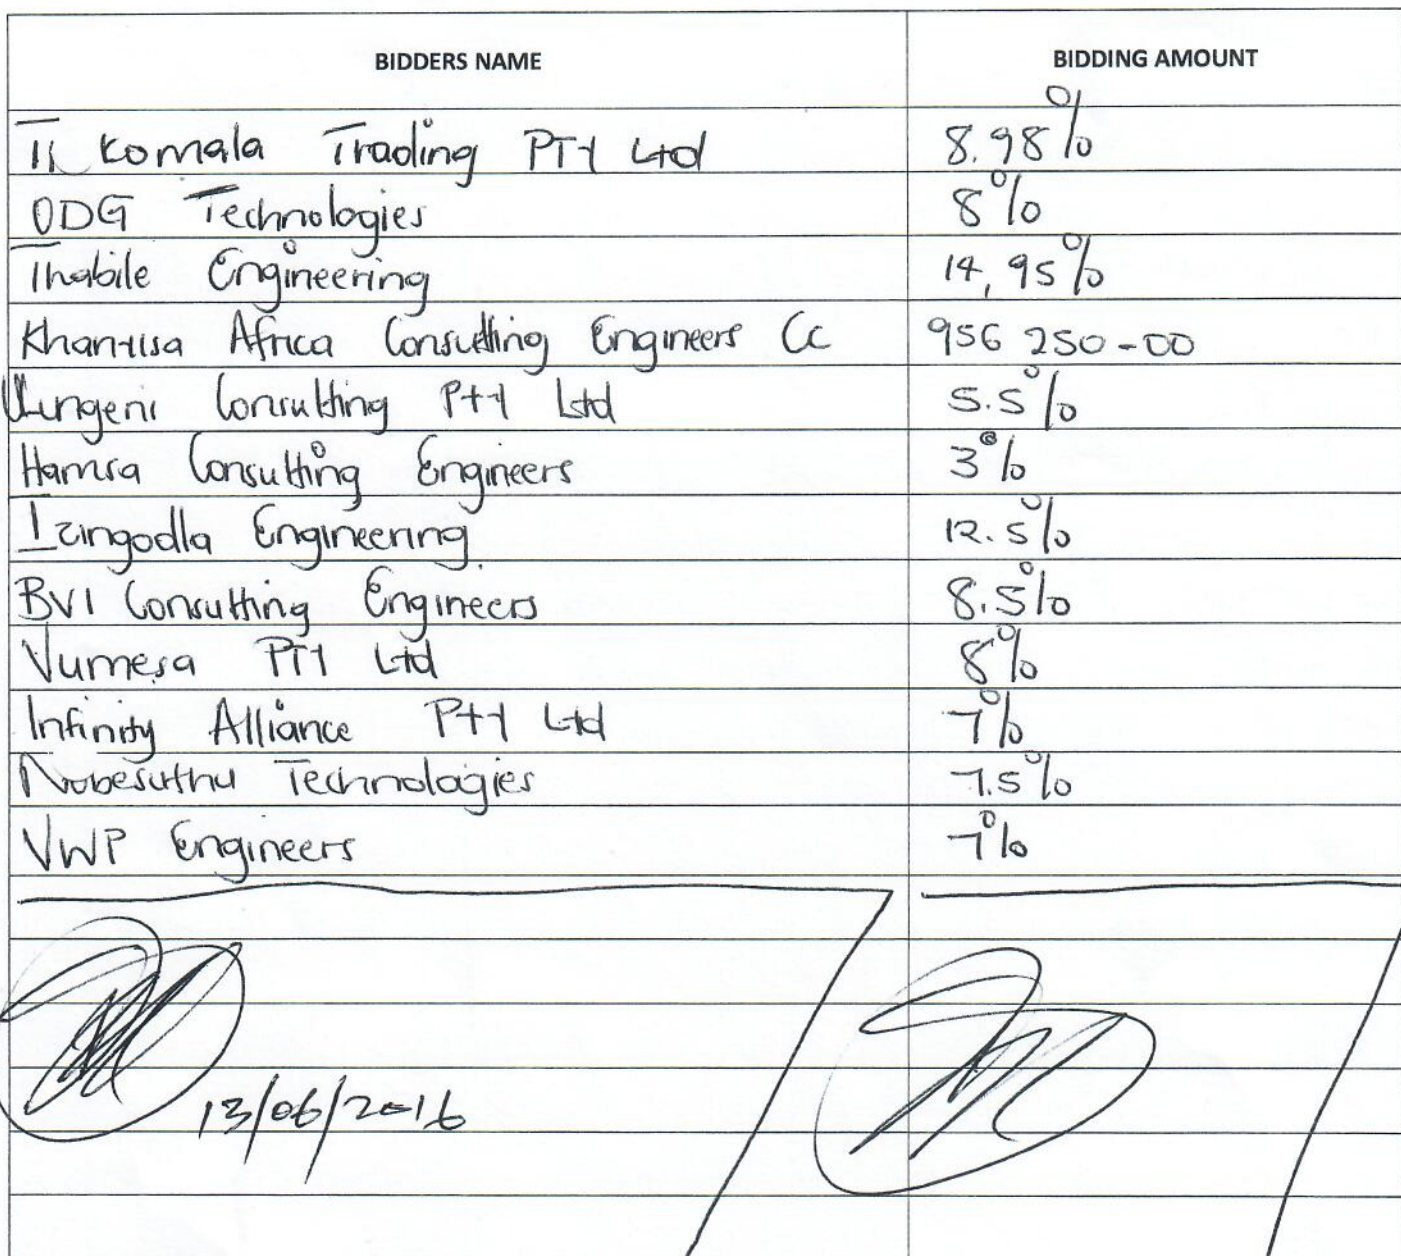 BIDDERS NAME BIDDING AMOUNT
Komala Trading PTY Ltd 8.98%
ODG Technologies 8%
Thabile Engineering 14,95%
Khantisa Africa Consulting Engineers Cc 956 250-00
Consulting Pty Ltd 5.5%
Hamsa Consulting Engineers 3%
Izingodla Engineering 12.5%
BVI Consulting Engineers 8.5%
Vumesa PTY Ltd 8%
Infinity Alliance Pty Ltd 7%
Nubesuthu Technologies 7.5%
VWP Engineers 7%
13/06/2016